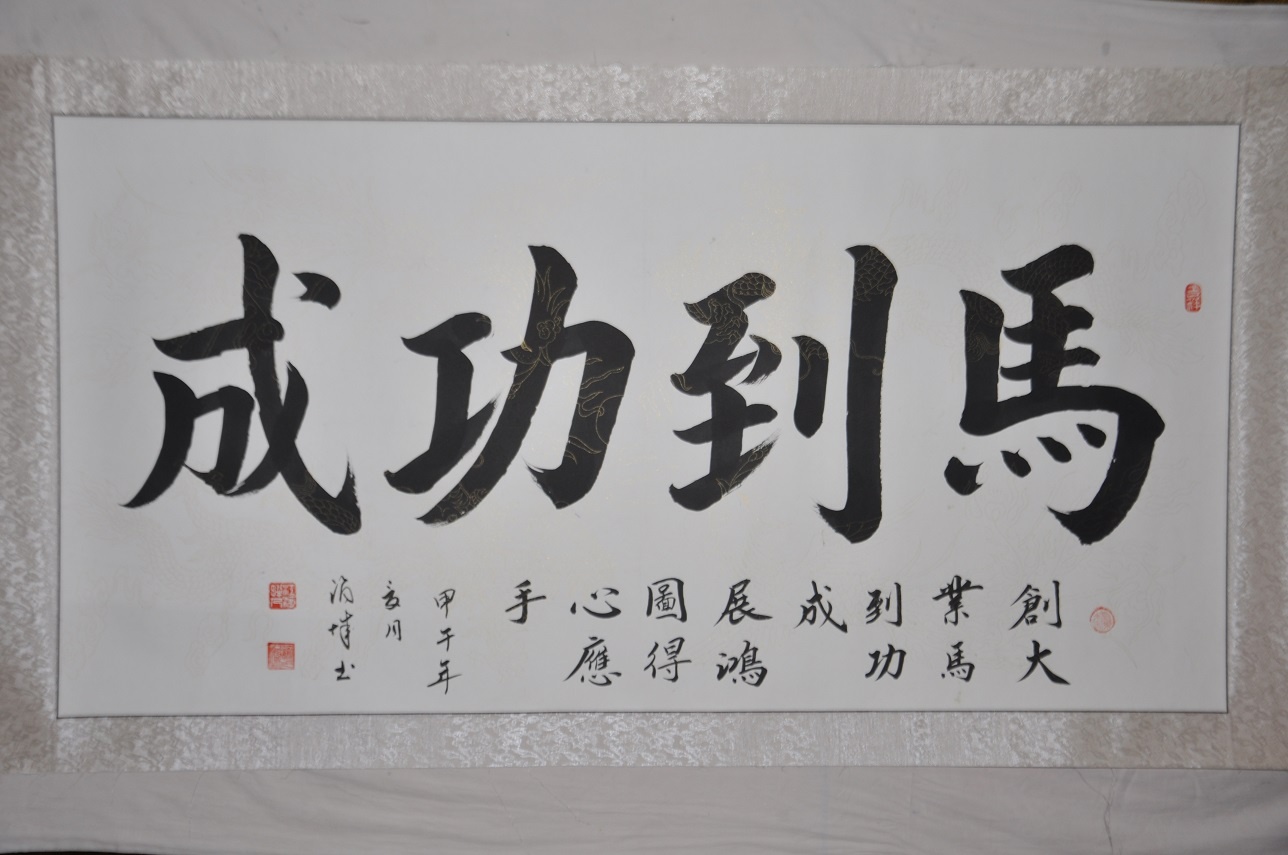 馬到功成
創大
業馬
到功
成
展鴻
圖得
心應
手
甲午年
书